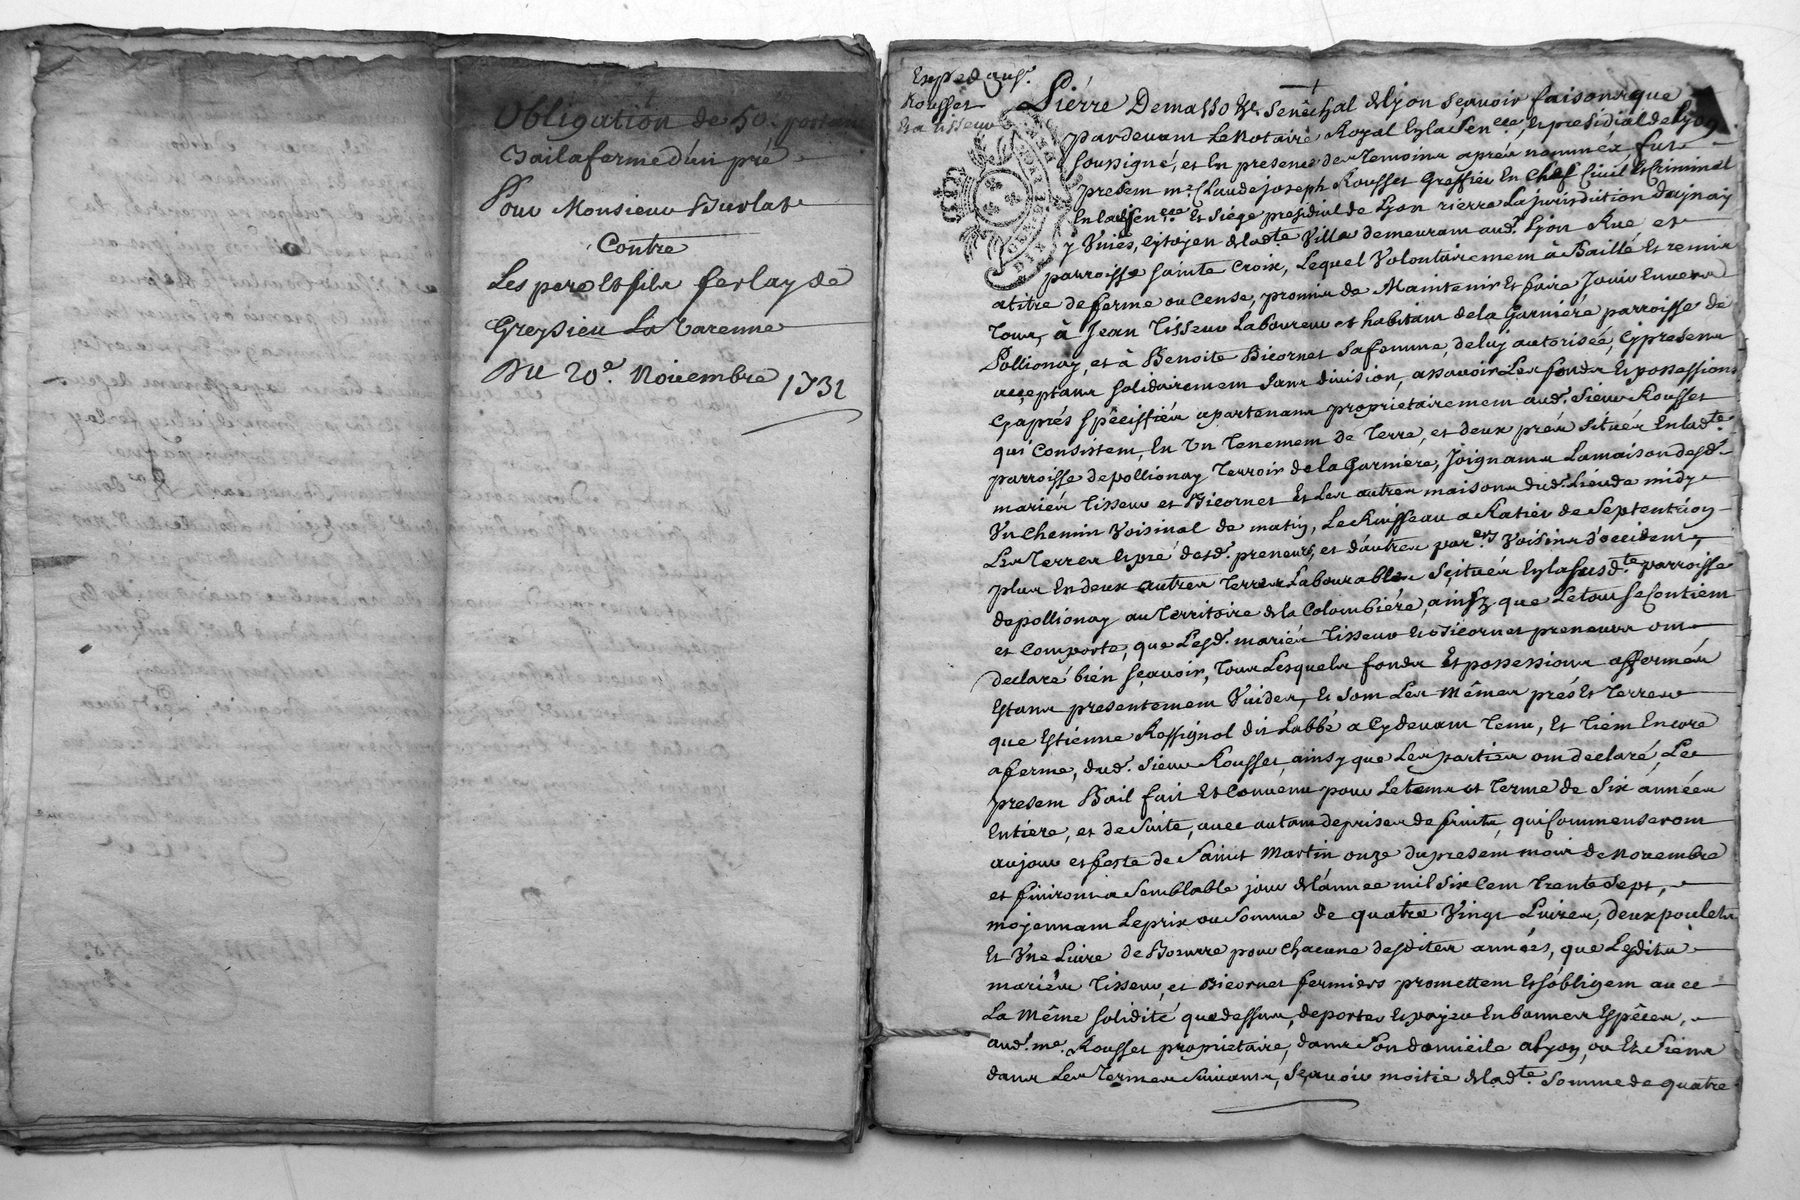 Obligation de 50.
Bail a ferme d'un pré
Pour Monsieur Burlat
Contre
Les pere et fils ferlay de
Greysieu La Varenne
Du 20e. Novembre 1731
Exped aux sr.
Rousset
Et a tisseur
Pierre Demasso &c. Senêchal de Lyon sçavoir faisons que
pardevant Le Notaire Royal En la Sen.cée, et presidial de Lyon
soussigné, et En presence des temoins aprés nommés fut
present mr. Claude joseph Rousset Greffier En chef Civil et Criminel
En lad. Sen.cée et siége presidial de Lyon rierre La jurisdiction daisnay
y Unies, Citoyen de lad.te Ville demeurant aud. Lyon Rue, et
parroisse sainte Croix, Lequel Volontairement à Baillé et remis
a titre de ferme ou Cense, promis de Maintenir et faire Jouir Envers
tous, à Jean tisseur Laboureur et habitant de la Garniére parroisse de
Pollionay, et à Benoite Bicornet sa femme, de luy autorisée, Cy presents
acceptans solidairement sans division, assavoir Les fonds et possessions
Cy aprés spêciffiés apartenans proprietairement aud. Sieur Rousset
qui Consistent, En Un Tenement de Terre, et deux prés situés En lad.te
parroisse de pollionay Terroir de la Garniére, Joignants La maison desd.
mariés Tisseur et Bicornet Et Les autres maisons dud. Lieu de midy
Un chemin Voisinal de matin, Le Ruisseau a Ratier de Septentrion
Les Terres et pré desd. preneurs, et d'autres par.ers Voisins d'occident,
plus En deux autres Terres Labourables scituées En la susd.te parroisse
de pollionay au Territoire de la Colombiére, ainsy que Le tout se Contient
et Comporte, que Lesd. mariés Tisseur et Bicornet preneurs ont
declaré bien sçavoir, Tous Lesquels fonds Et possessions affermés
Estans presentement Vuides, et sont Les Mêmes prés Et Terres
que Estienne Rossignol dit Labbé a Cydevant Tenu, Et Tient Encore
a ferme, dud. Sieur Rousset, ainsy que Les parties ont declaré, Le
present Bail fait Et Convenu pour Le tems et Terme de Six années
Entiere, et de suite, avec autant de prises de fruits, qui Commenseront
aujour et feste de Saint Martin onze du present mois de Novembre
et finiront a Semblable jour de l'année mil Six Cent Trente Sept,
moyennant Le prix ou Somme de quatre Vingt Livres, deux poulets
Et Une Livre de Beurre pour chacune desdites années, que Lesdits
mariés Tisseur, et Bicornet fermiers promettent Et s'obligent avec
La Même solidité que dessus, de porter et payer En bonnes Espêces,
aud. me. Rousset proprietaire, dans Son domicile a Lyon, ou Et Siens
dans Les Termes Suivants, Sçavoir moitié de lad.te Somme de quatre